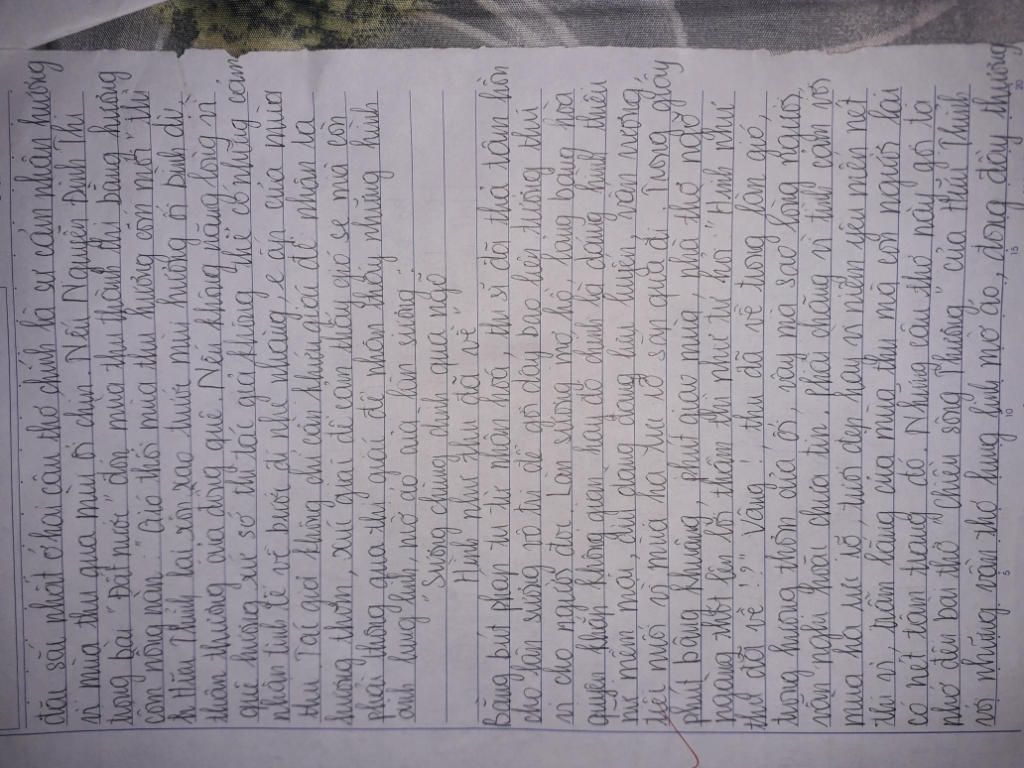 dấu sắc phát ở hai câu thơ chính là sự cảm nhận hương
vị mùa thu qua mùi ổi chín. Nếu Nguyễn Đình Thi
trong bài "Đất nước" đón mùa thu thành thi bằng hương
cốm nồng nàn "Gió thổi mùa thu hương cốm mới" thì
Hữu Thỉnh lại xôn xao trước mùi hương ổi bình dị,
thân thương của đồng quê. Nếu không nặng lòng vì
quê hương xứ sở thì tác giả không thể có những cảm
nhận tinh tế về bước đi nhẹ nhàng, e ấp của mùa
thu. Tác giả không chỉ cảm khứu giác để nhận ra
hương thơm, xúc giác để cảm thấy gió se mà còn
phải thông qua thị giác để nhận thấy những hình
ảnh lung linh, mờ ảo của làn sương
"Sương chùng chình qua ngõ
Hình như thu đã về"
Bằng bút pháp tu từ nhân hoá thi sĩ đã thả tâm hồn
cho làn sương vô tri để gợi dậy bao liên tưởng thú
vị cho người đọc. Làn sương mơ hồ, lảng bảng hoà
quyện khắp không gian hay đó chính là dáng hình thiếu
nữ mềm mại, dịu dàng đang lưu luyến, vấn vương
tiếc nuối vì mùa hạ rực rỡ sắp qua đi. Trong giây
phút bâng khuâng, phút giao mùa, nhà thơ ngỡ
ngàng thốt lên lời thầm thì như tự hỏi "Hình như
thu đã về !?" Vâng! thu đã về trong làn gió,
trong hương thơm của ổi, vậy mà sao lòng người
vẫn nghi hoài chưa tin, phải chăng vì tình cảm với
mùa hạ rực rỡ, tươi đẹp hay vì miền yên miên nét
thi vị, thầm lắng của mùa thu mà con người lại
có nét tâm trạng đó. Những câu thơ này gợi ta
nhớ đến bài thơ "Chiều sông Thương" của Hữu Thỉnh
với những vần thơ lung linh mơ ảo, đong đầy thương
5 10 15 20